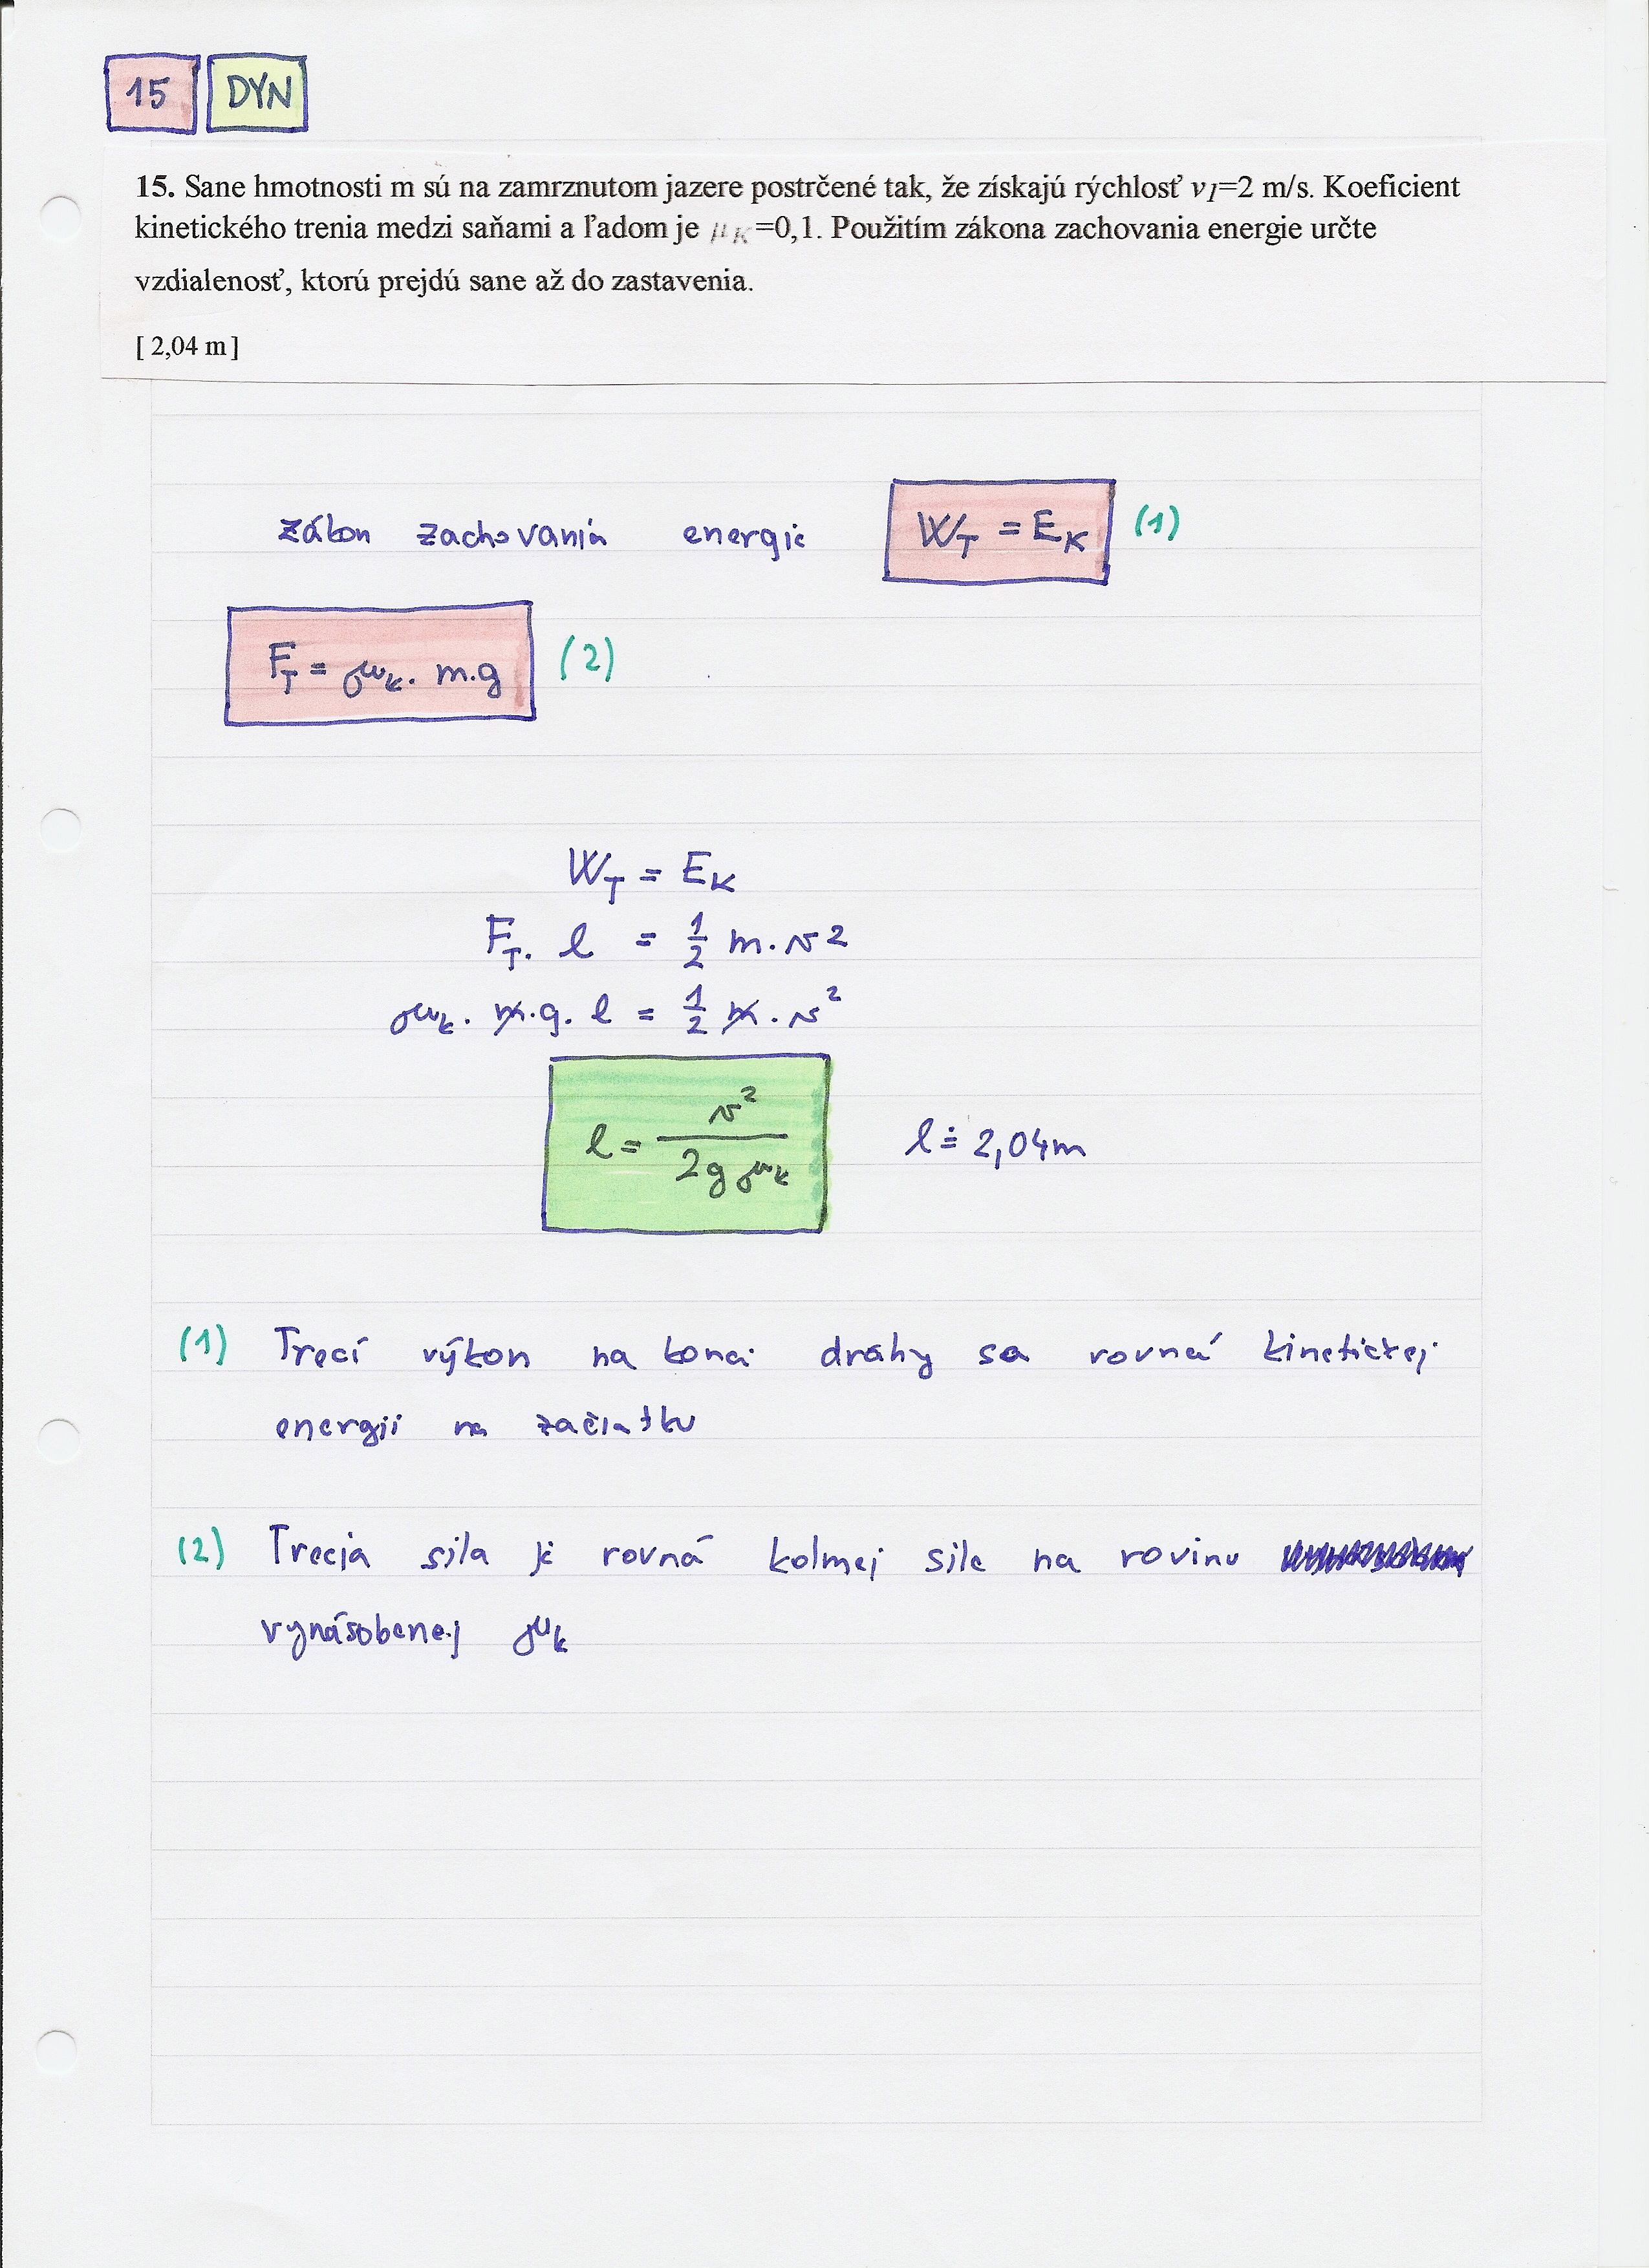 15 DYN
15. Sane hmotnosti m sú na zamrznutom jazere postrčené tak, že získajú rýchlosť v1=2 m/s. Koeficient
kinetického trenia medzi saňami a ľadom je μK=0,1. Použitím zákona zachovania energie určte
vzdialenosť, ktorú prejdú sane až do zastavenia.
[ 2,04 m]
zákon zachovania energie W_T = E_K (1)
F_T = μ_k . m.g (2)
W_T = E_K
F_T . l = 1/2 m . v2
μ_k . m.g. l = 1/2 m . v²
l = v² / 2gμ_k l ≐ 2,04m
(1) Trecí výkon na konci dráhy sa rovná kinetickej
energii na začiatku
(2) Trecia sila je rovná kolmej sile na rovinu
vynásobenej μ_k